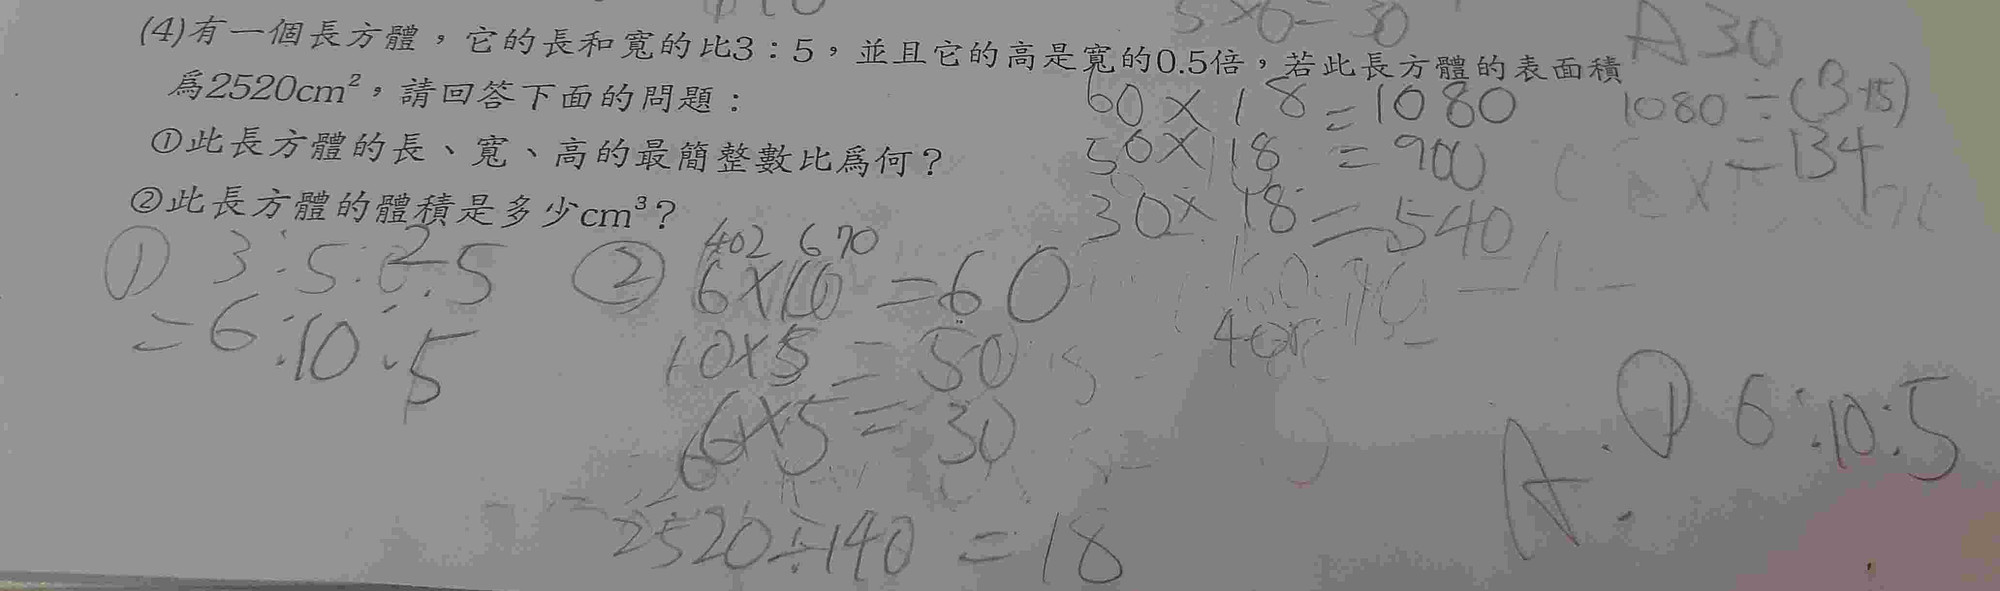 5×6=30
A30
(4)有一個長方體，它的長和寬的比3：5，並且它的高是寬的0.5倍，若此長方體的表面積
為2520cm²，請回答下面的問題：
①此長方體的長、寬、高的最簡整數比為何？
②此長方體的體積是多少cm³？
60×18=1080
50×18=900
30×18=540
1080÷(3+5)
=134
① 3:5:2.5
=6:10:5
② 402 670
6×10=60
10×5=50
6×5=30
2520÷140=18
A:① 6:10:5